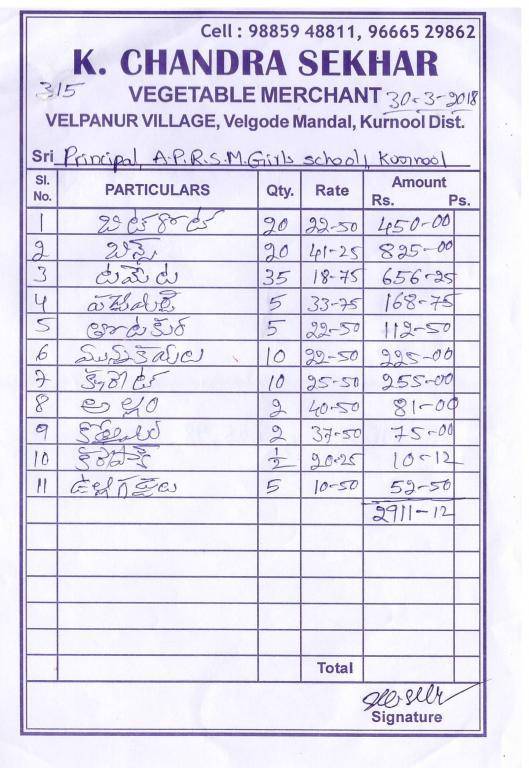 Cell : 98859 48811, 96665 29862
K. CHANDRA SEKHAR
315 VEGETABLE MERCHANT 30-3-2018
VELPANUR VILLAGE, Velgode Mandal, Kurnool Dist.
Sri Principal, A.P.R.S.M.Girls school, Kurnool
Sl. No. PARTICULARS Qty. Rate Amount Rs. Ps.
1 బీట్రూట్ 20 22-50 450-00
2 బీన్స్ 20 41-25 825-00
3 టమేట 35 18-75 656-25
4 పచ్చిమిర్చి 5 33-75 168-75
5 తోటకుర 5 22-50 112-50
6 మునక్కాయలు 10 22-50 225-00
7 క్యారెట్ 10 25-50 255-00
8 అల్లం 2 40-50 81-00
9 2 37-50 75-00
10 కరేపాక్ ½ 20-25 10-12
11 ఉల్లిగడ్డలు 5 10-50 52-50
2911-12
Total
Signature